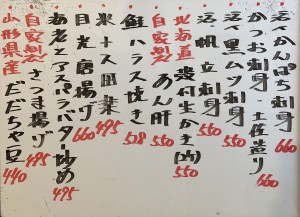 活〆かんぱち刺身 660
かつお刺身・土佐造り 660
活〆黒ムツ刺身 550
活帆立刺身 550
北海道 煮付生かき(2ヶ) 550
自家製 あん肝 550
鮭ハラス焼き 528
米ナス田楽 495
目光唐揚げ 660
海老とアスパラバター炒め 495
自家製 さつま揚げ 495
山形県産 だだちゃ豆 440